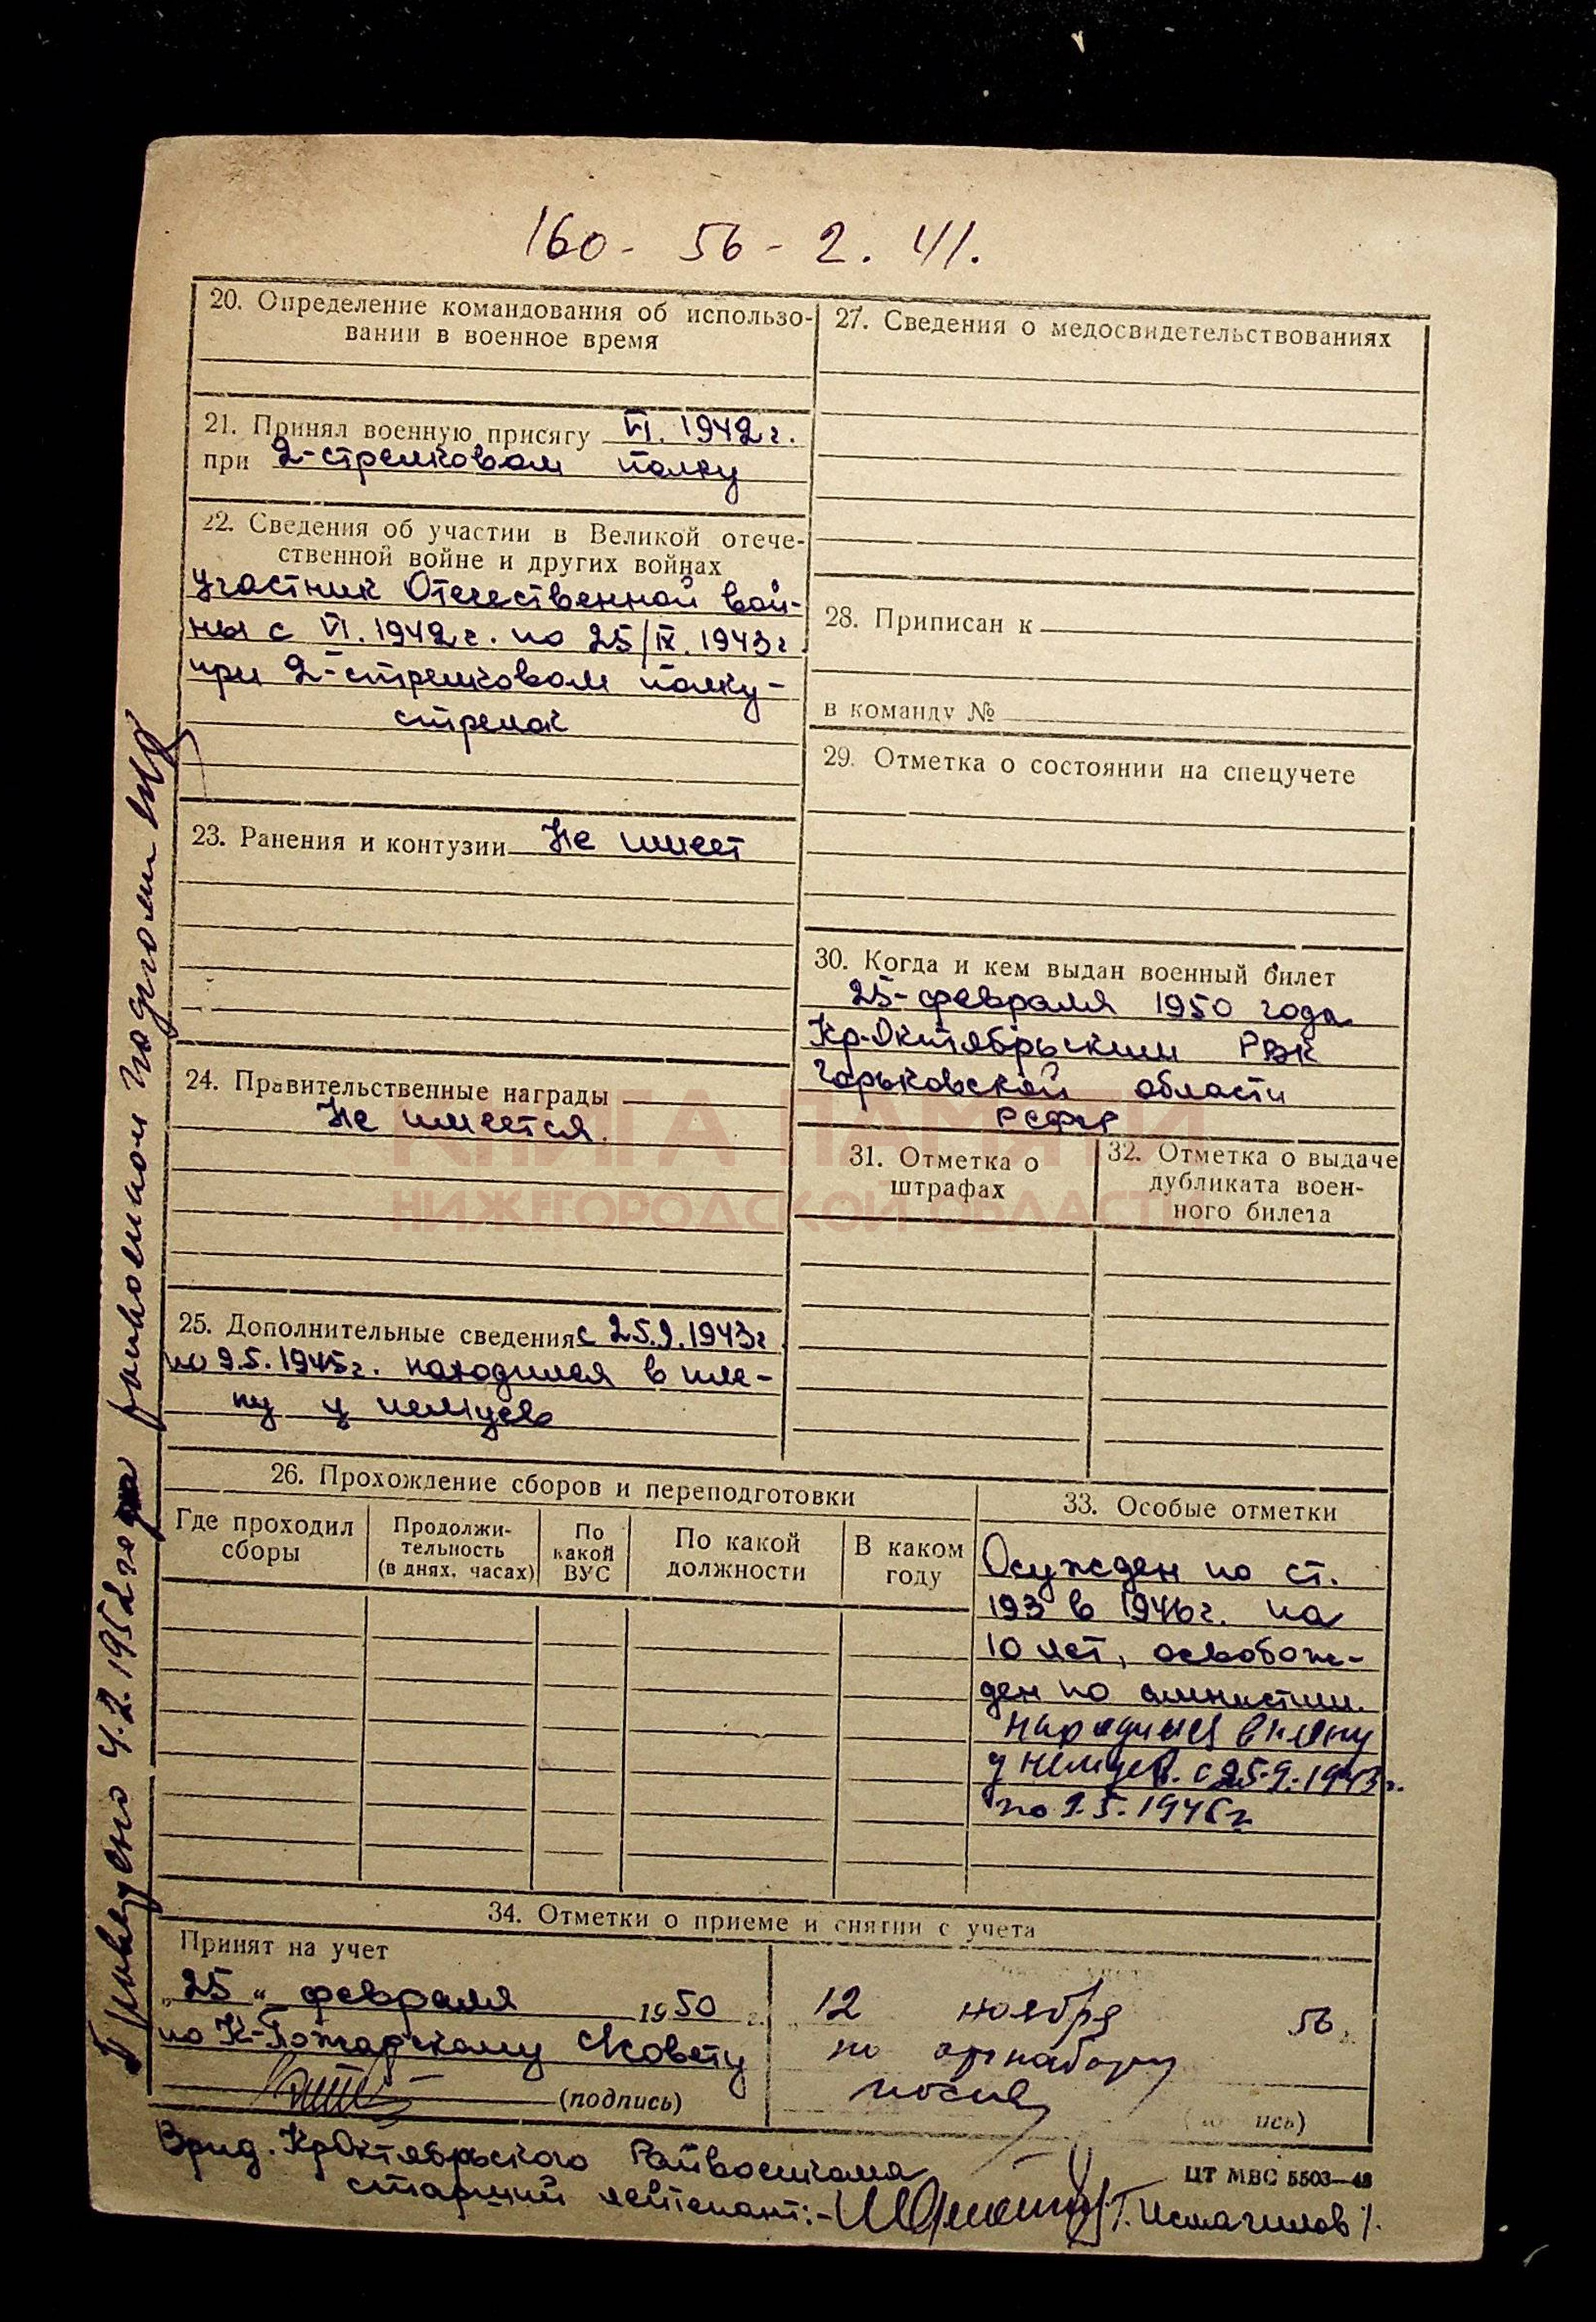 160 - 56 - 2. 41.
20. Определение командования об использо-
вании в военное время
21. Принял военную присягу VI. 1942 г.
при 2-стрелковом полку
22. Сведения об участии в Великой отече-
ственной войне и других войнах
участник Отечественной вой-
ны с VI. 1942 г. по 25/IX. 1943 г
при 2-стрелковом полку -
стрелок
23. Ранения и контузии Не имеет
24. Правительственные награды
Не имеется.
25. Дополнительные сведения с 25.9.1943 г
по 9.5.1945 г. находился в пле-
ну у немцев
26. Прохождение сборов и переподготовки
Где проходил
сборы
Продолжи-
тельность
(в днях, часах)
По
какой
ВУС
По какой
должности
В каком
году
27. Сведения о медосвидетельствованиях
28. Приписан к
в команду №
29. Отметка о состоянии на спецучете
30. Когда и кем выдан военный билет
25-февраля 1950 года
Кр-Октябрьским РВК
Горьковской области
РСФСР
КНИГА ПАМЯТИ
НИЖЕГОРОДСКОЙ ОБЛАСТИ
31. Отметка о
штрафах
32. Отметка о выдаче
дубликата воен-
ного билета
33. Особые отметки
Осужден по ст.
193 в 1946 г. на
10 лет, освобож-
ден по амнистии.
находился в плену
у немцев. с 25.9.1943 г.
по 9.5.1945 г
34. Отметки о приеме и снятии с учета
Принят на учет
„25„ февраля 1950 г.
по К-Пожарскому С/совету
(подпись)
12 ноября 56 г.
по оргнабору
Врид. КрОктябрьского Райвоенкома
старший лейтенант:- /Г. Исмагилов/.
ЦТ МВС 5503—48
Проведено 4.2.1952 года